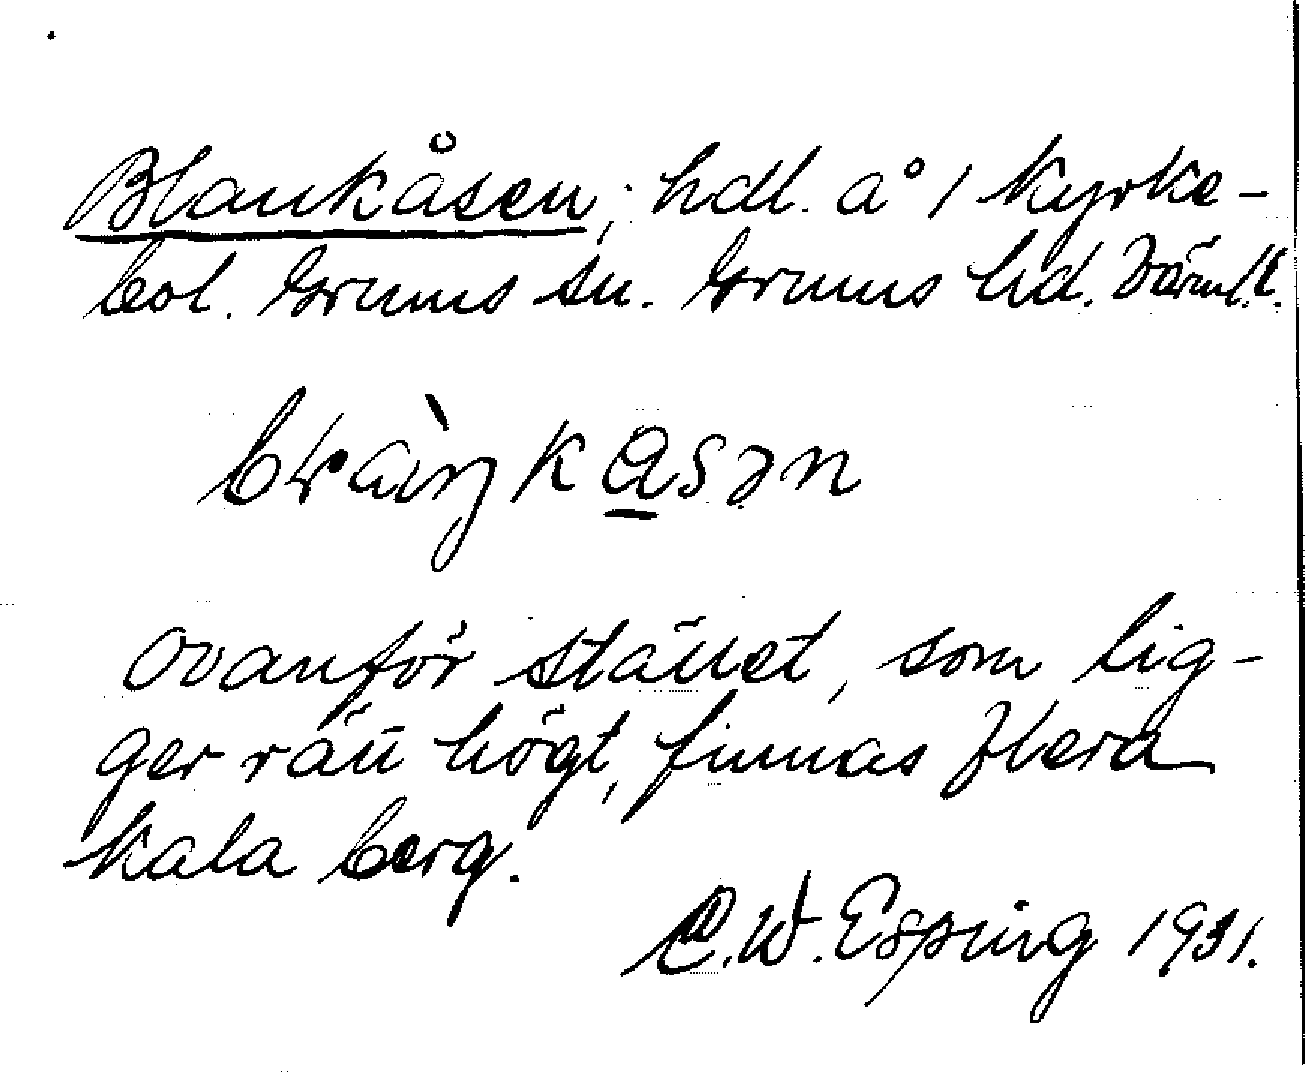 Blankåsen; hdl. å 1 Kyrke-
bol. Grums sn. Grums hd. Värml. l.
Ovanför stället, som lig-
ger rätt högt, finnas flera
kala berg.
C.W. Esping 1931.